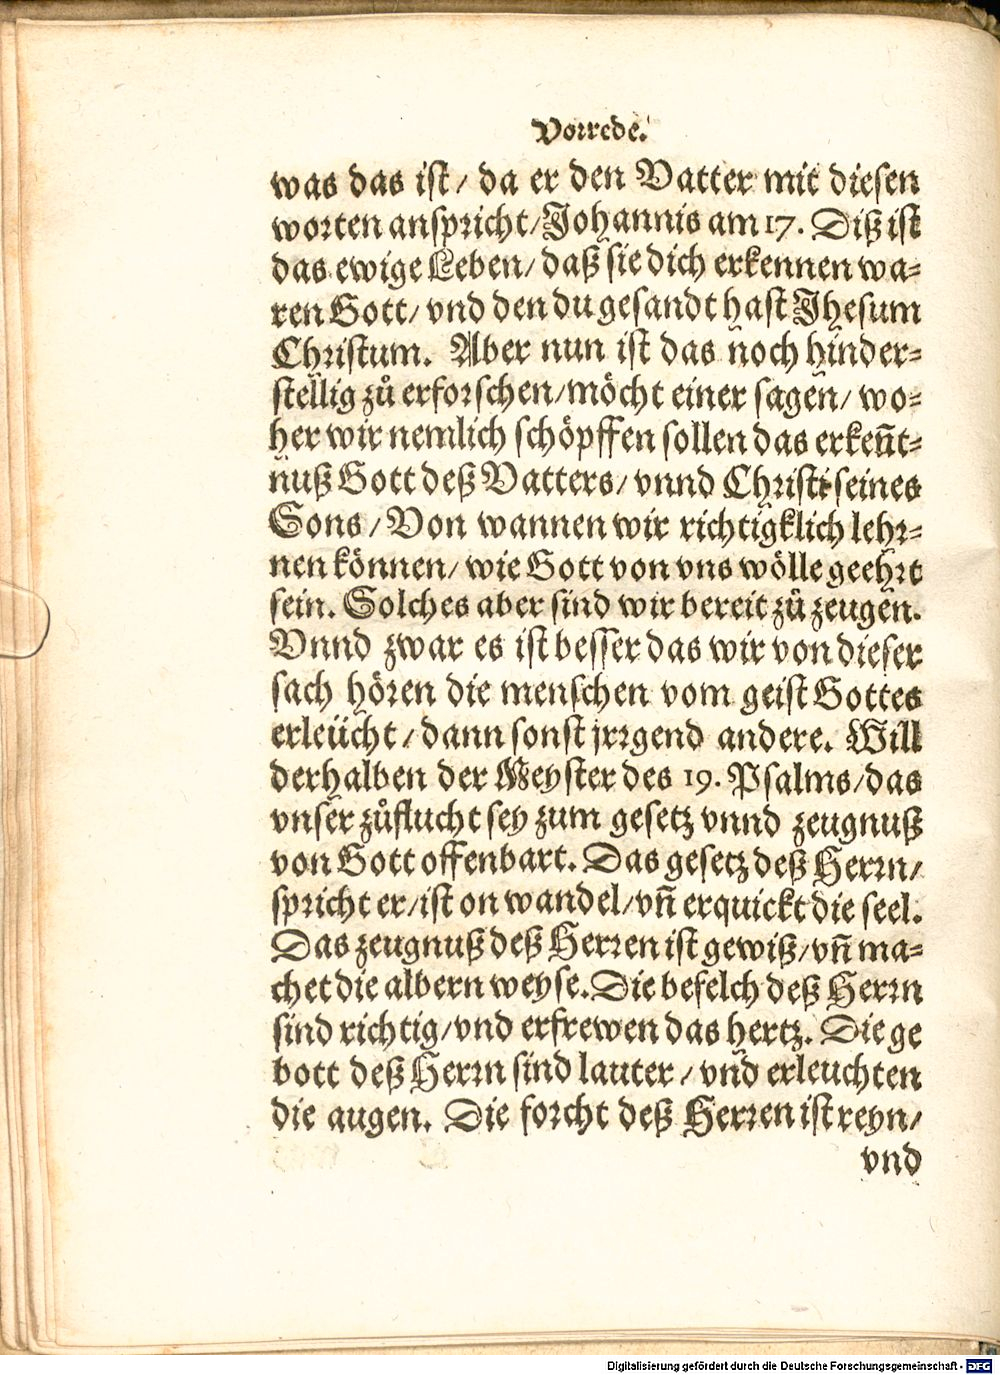 Vorrede.
was das ist/ da er den Vatter mit diesen
worten anspricht/Johannis am 17. Diß ist
das ewige Leben/ daß sie dich erkennen wa-
ren Gott/ vnd den du gesandt hast Jhesum
Christum. Aber nun ist das noch hinder-
stellig zů erforschen/möcht einer sagen/ wo-
her wir nemlich schöpffen sollen das erkeñt-
nuß Gott deß Vatters/ vnnd Christi seines
Sons/ Von wannen wir richtigklich lehr-
nen können/ wie Gott von vns wölle geehrt
sein. Solches aber sind wir bereit zů zeugen.
Vnnd zwar es ist besser das wir von dieser
sach hören die menschen vom geist Gottes
erleücht/ dann sonst jrrgend andere. Will
derhalben der Meyster des 19. Psalms/das
vnser zůflucht sey zum gesetz vnnd zeugnuß
von Gott offenbart. Das gesetz deß Herrn/
spricht er/ist on wandel/vñ erquickt die seel.
Das zeugnuß deß Herren ist gewiß/vñ ma-
chet die albern weyse. Die befelch deß Herrn
sind richtig/vnd erfrewen das hertz. Die ge
bott deß Herrn sind lauter/ vnd erleuchten
die augen. Die forcht deß Herren ist reyn/
vnd
Digitalisierung gefördert durch die Deutsche Forschungsgemeinschaft - DFG